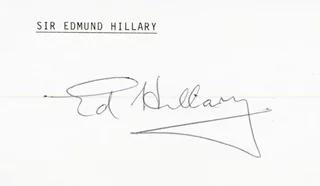 SIR EDMUND HILLARY
Ed Hillary